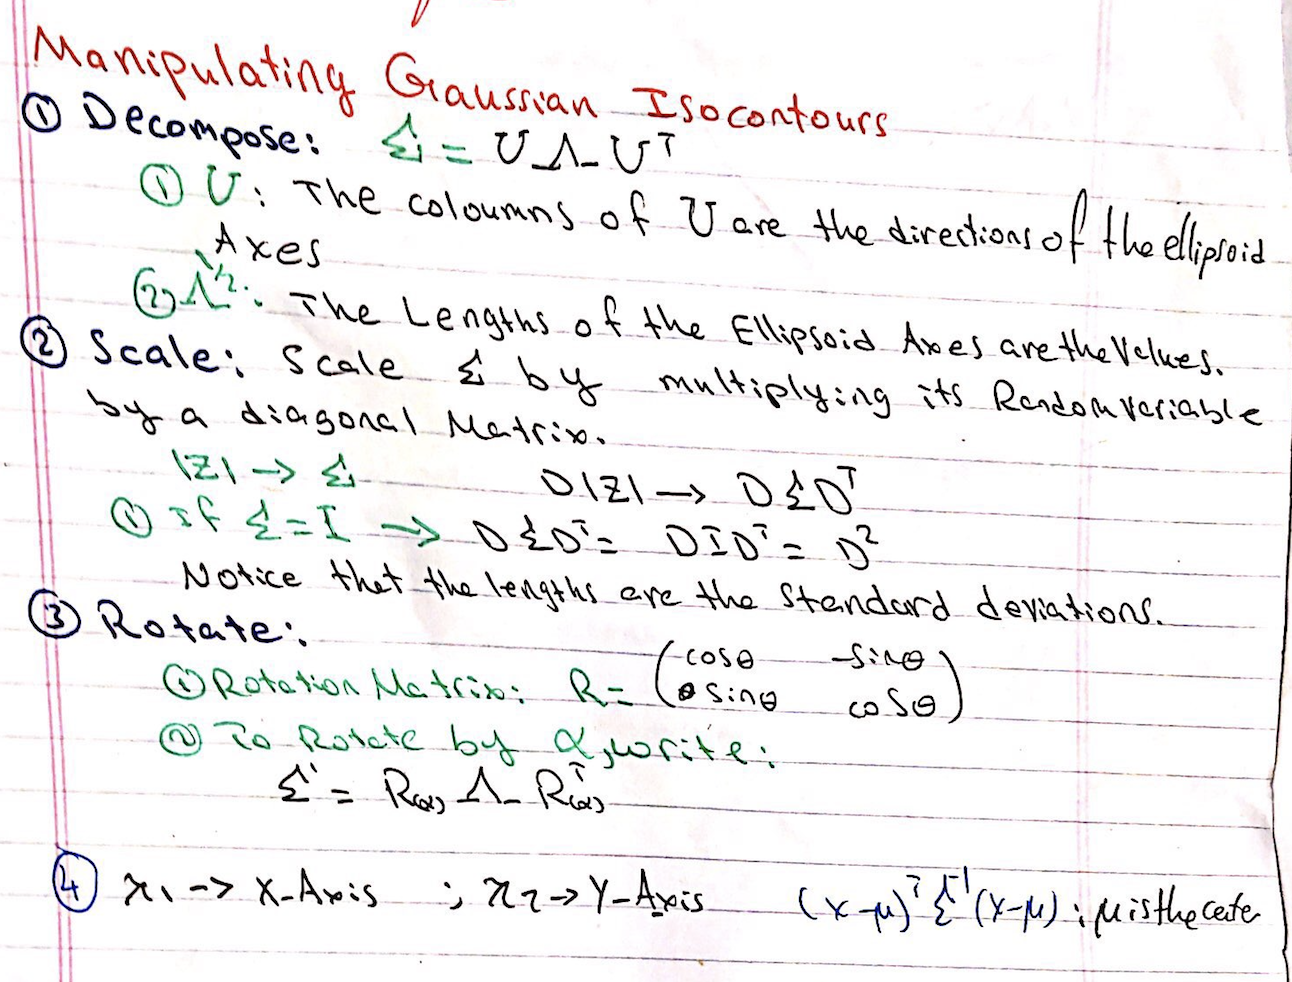 Manipulating Gaussian Isocontours
① Decompose: Σ = U Λ U^T
① U: The coloumns of U are the directions of the ellipsoid
Axes
② Λ^1/2: The Lengths of the Ellipsoid Axes are the Values.
② Scale: Scale Σ by multiplying its Random variable
by a diagonal Matrix.
|Z| → Σ D|Z| → DΣD^T
① If Σ = I → DΣD^T = DID^T = D^2
Notice that the lengths are the standard deviations.
③ Rotate:
① Rotation Matrix: R = (cosθ -sinθ
sinθ cosθ)
② To Rotate by α, write:
Σ' = R(α) Λ R(α)^T
④ x1 -> X-Axis ; x2 -> Y-Axis (x-μ)^T Σ^-1 (x-μ) ; μ is the ceter